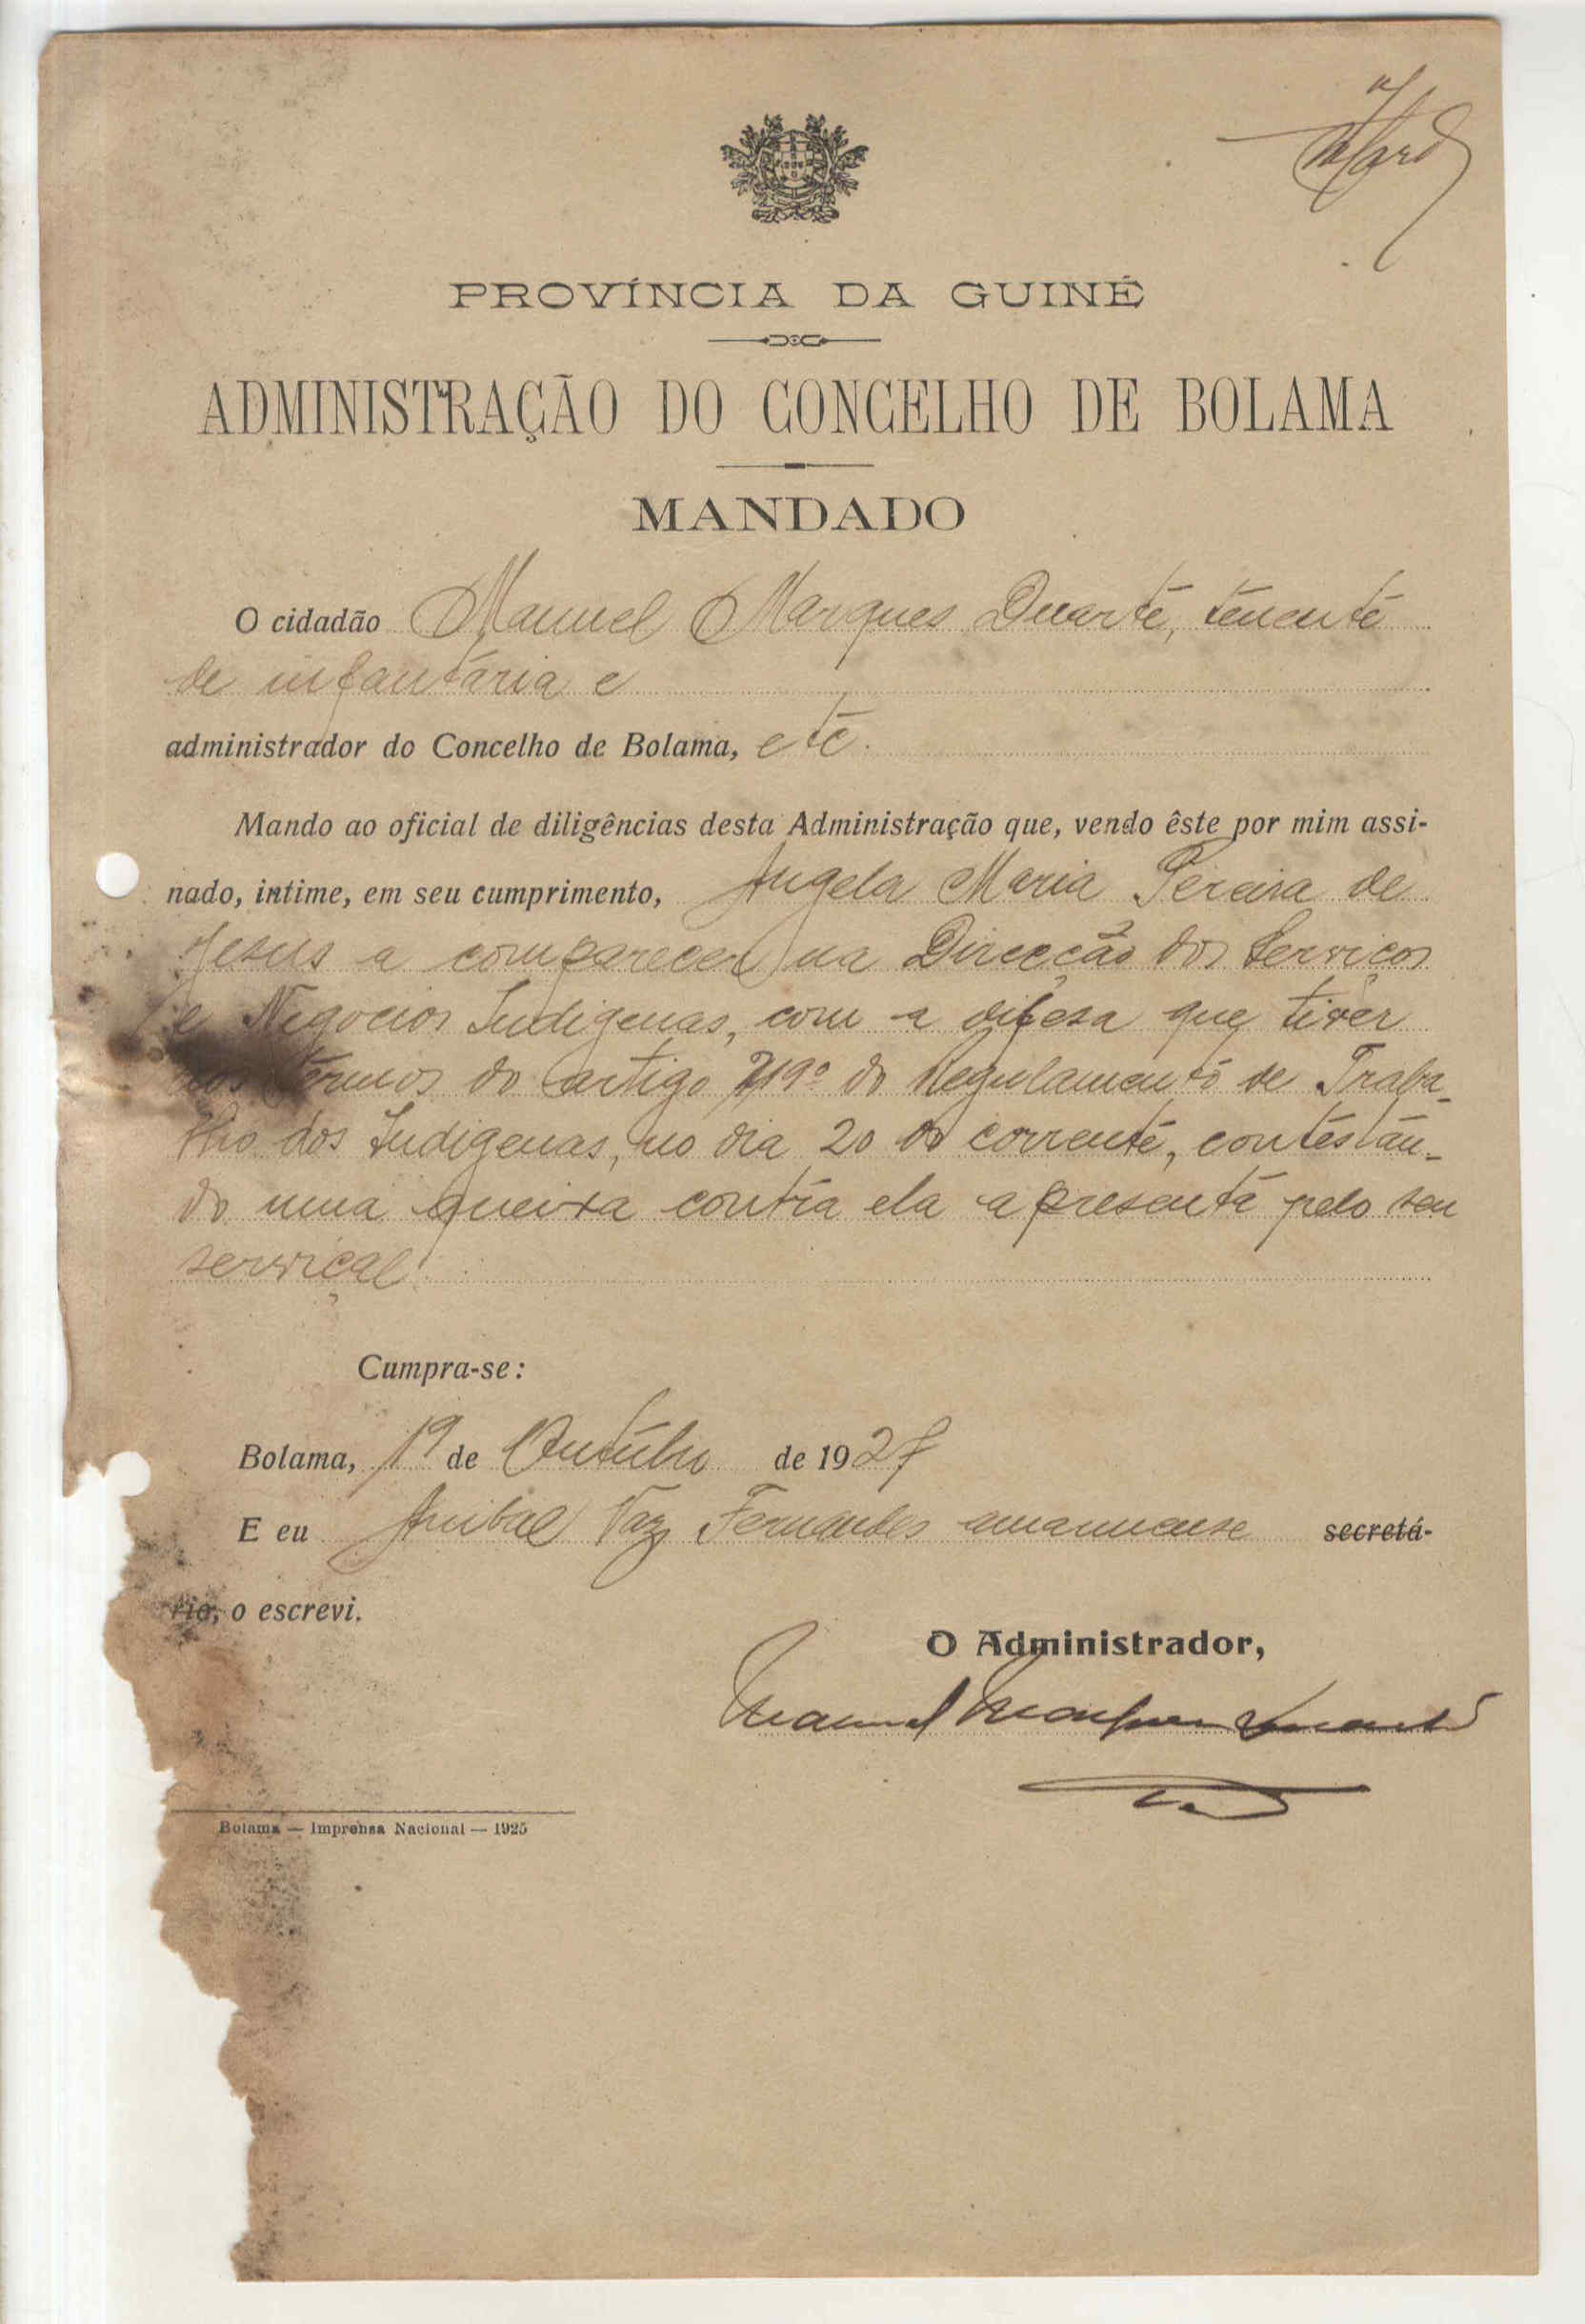 PROVÍNCIA DA GUINÉ
ADMINISTRAÇÃO DO CONCELHO DE BOLAMA
MANDADO
O cidadão Manuel Marques Duarte, tenente
de infantaria e
administrador do Concelho de Bolama, etc.
Mando ao oficial de diligências desta Administração que, vendo êste por mim assi-
nado, intime, em seu cumprimento, Angela Maria Pereira de
Jesus a comparecer na Direcção dos Serviços
e Negocios Indigenas, com a difesa que tiver
nos termos do artigo do Regulamento de Traba-
lho dos Indigenas, no dia 20 do corrente, contestan-
do uma queixa contra ela apresenta pelo seu
serviçal.
Cumpra-se:
Bolama, 19 de Outubro de 1927
E eu Anibal Vaz Fernandes amanuense secretá-
rio, o escrevi.
O Administrador,
Manuel Marques Duarte
Bolama — Imprensa Nacional — 1925